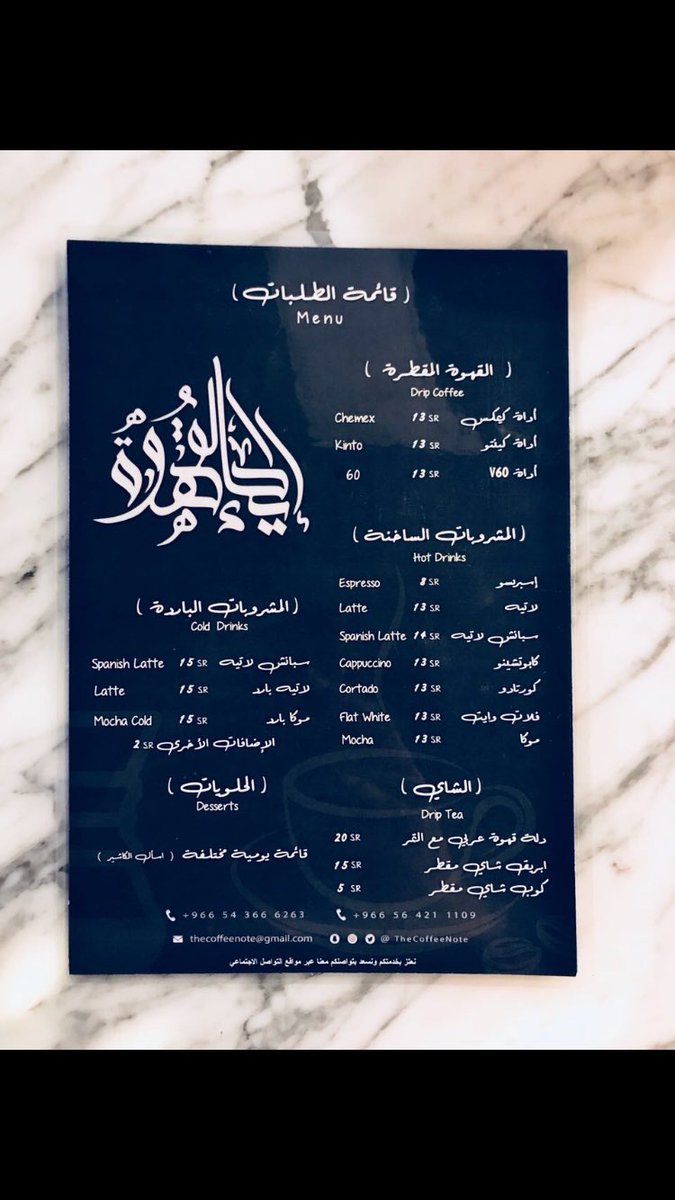 ( قائمة الطلبات )
Menu
( القهوة المقطرة )
Drip Coffee
أداة كيمكس 13 SR Chemex
أداة كينتو 13 SR Kinto
أداة V60 13 SR 60
( المشروبات الساخنة )
Hot Drinks
إسبريسو 8 SR Espresso
لاتيه 13 SR Latte
سبانش لاتيه 14 SR Spanish Latte
كابوتشينو 13 SR Cappuccino
كورتادو 13 SR Cortado
فلات وايت 13 SR Flat White
موكا 13 SR Mocha
( الشاي )
Drip Tea
دلة قهوة عربي مع التمر 20 SR
ابريق شاي مقطر 15 SR
كوب شاي مقطر 5 SR
( المشروبات الباردة )
Cold Drinks
سبانش لاتيه 15 SR Spanish Latte
لاتيه بارد 15 SR Latte
موكا بارد 15 SR Mocha Cold
الإضافات الأخرى 2 SR
( الحلويات )
Desserts
قائمة يومية مختلفة ( اسأل الكاشير )
+966 54 366 6263 +966 56 421 1109
thecoffeenote@gmail.com @ TheCoffeeNote
نعتز بخدمتكم ونسعد بتواصلكم معنا عبر مواقع التواصل الاجتماعي